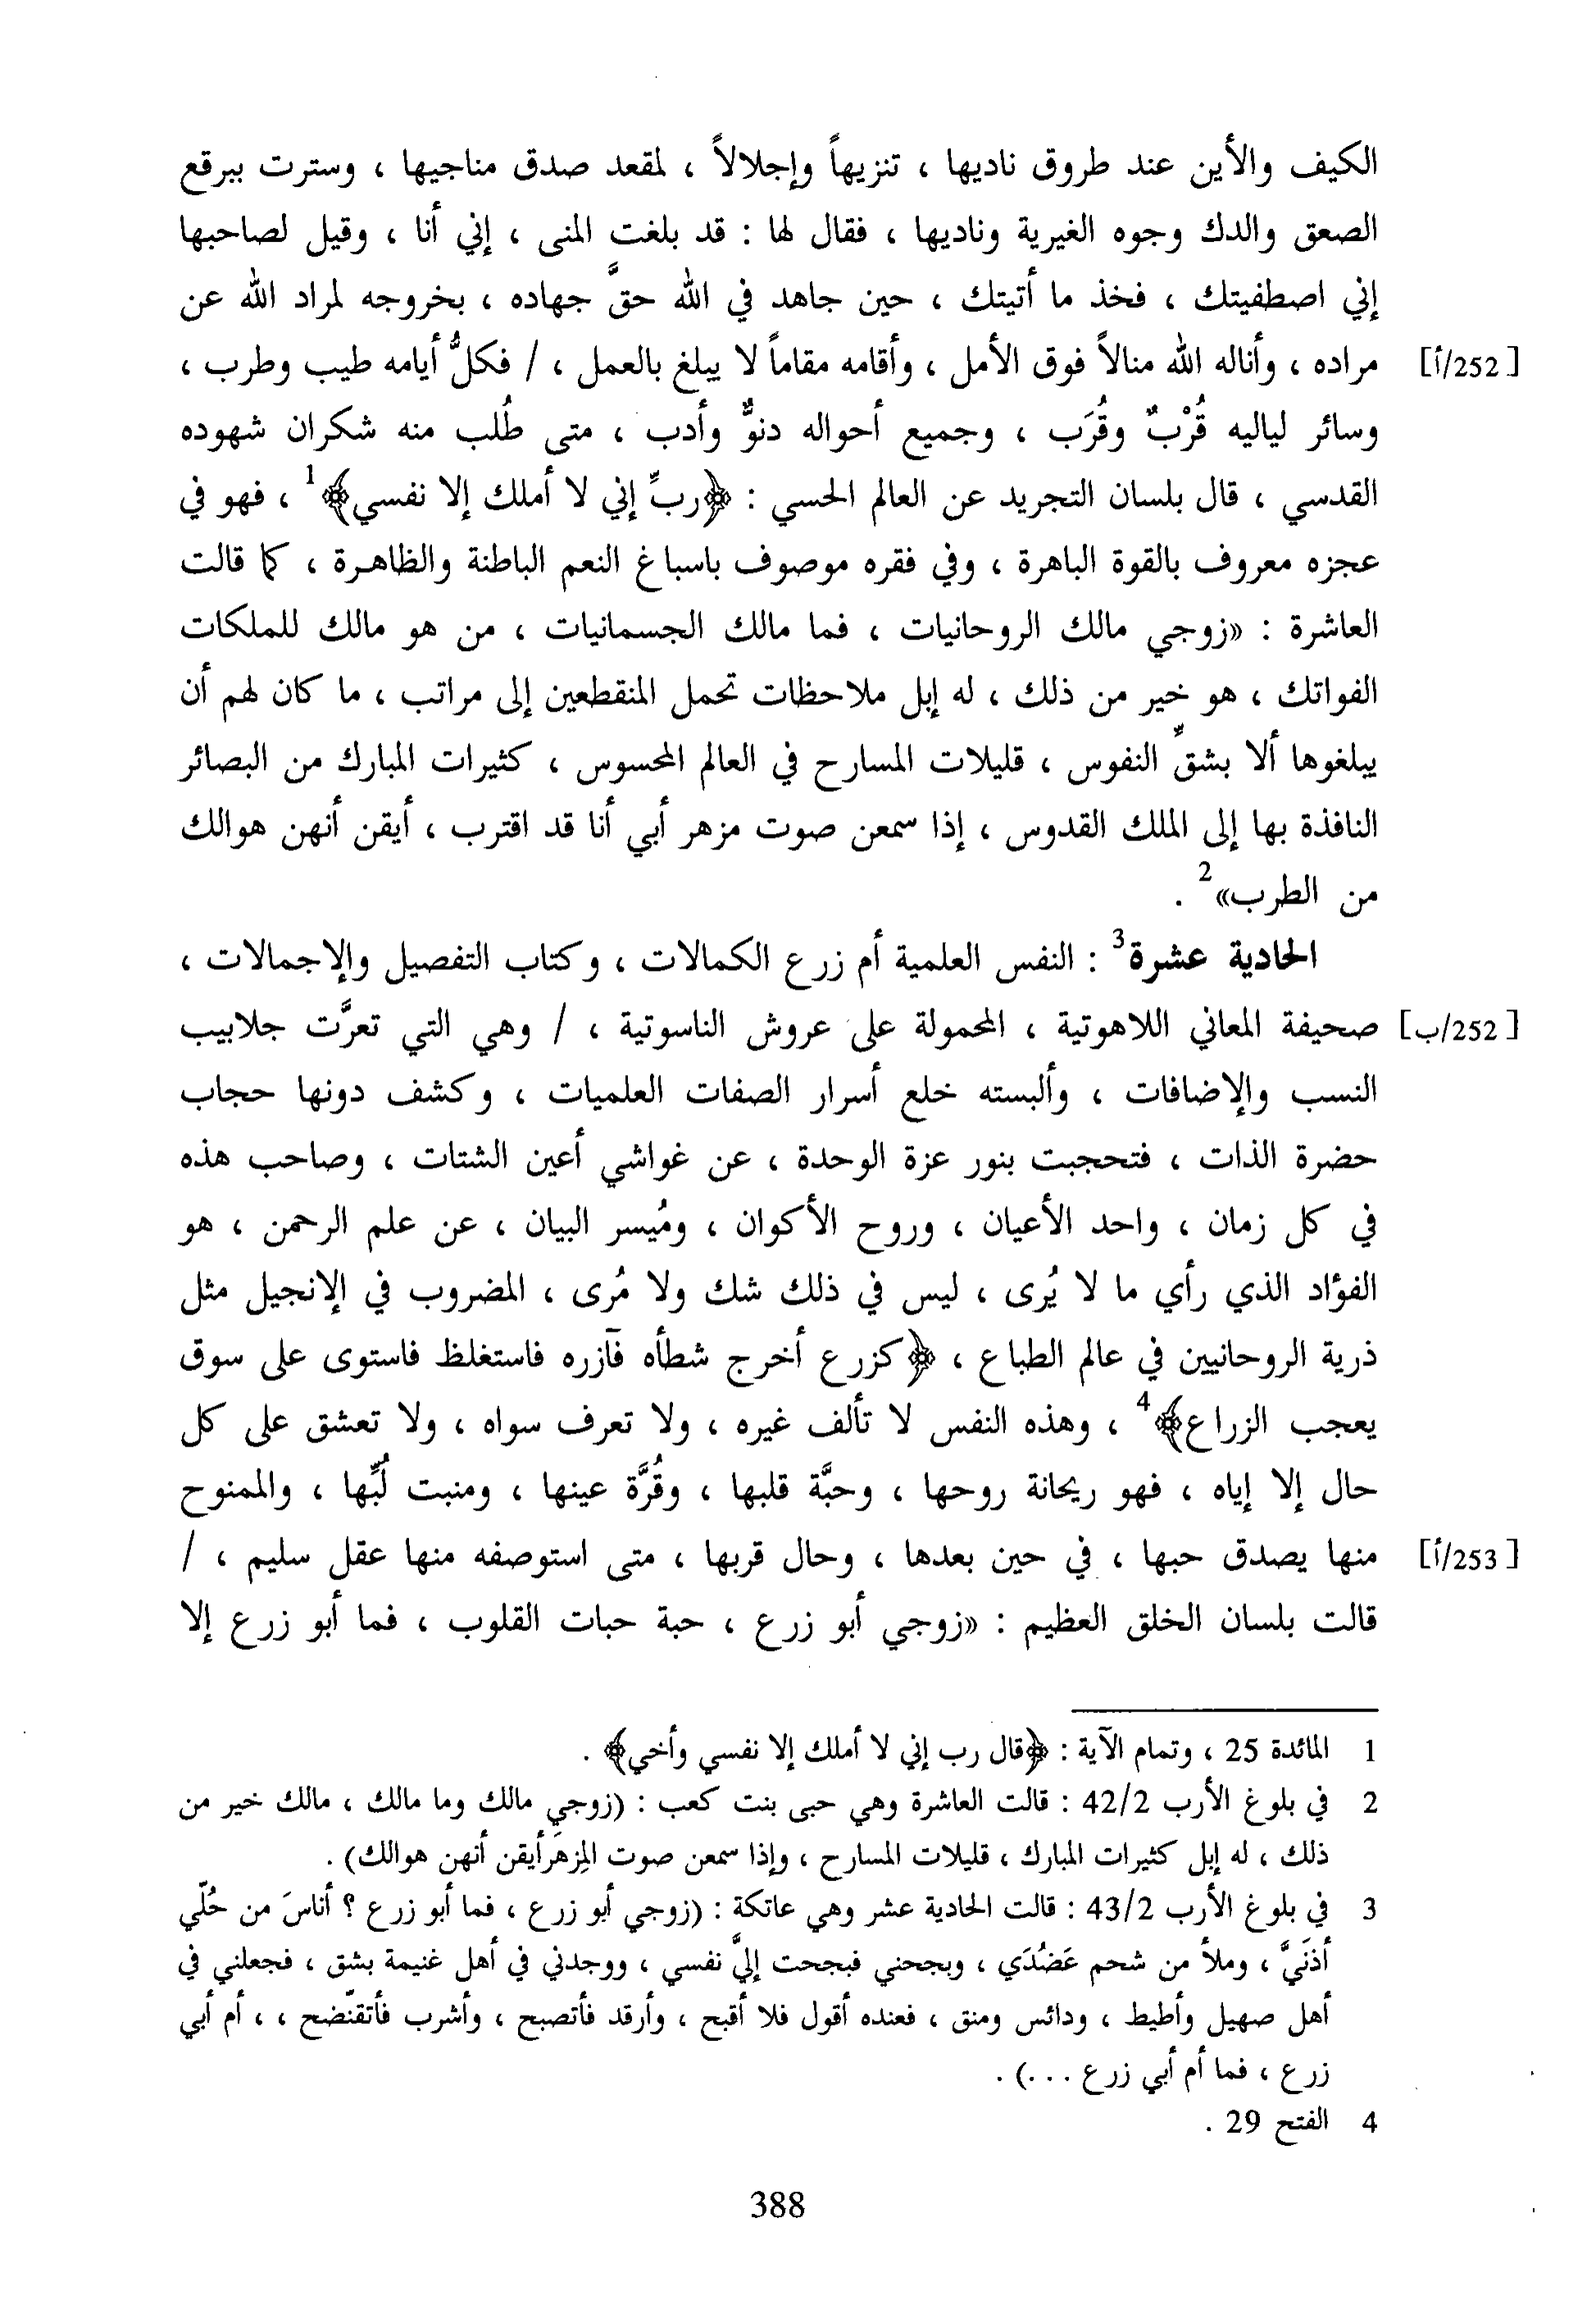 الكيف والأين عند طروق ناديها ، تنزيهاً وإجلالاً ، لمقعد صدق مناجيها ، وسترت ببرقع
الصعق والدك وجوه الغيرية وناديها ، فقال لها : قد بلغت المنى ، إني أنا ، وقيل لصاحبها
إني اصطفيتك ، فخذ ما أتيتك ، حين جاهد في الله حقَّ جهاده ، بخروجه لمراد الله عن
[252/أ] مراده ، وأناله الله منالاً فوق الأمل ، وأقامه مقاماً لا يبلغ بالعمل ، / فكلُّ أيامه طيب وطرب ،
وسائر لياليه قُرْبٌ وقُرَب ، وجميع أحواله دنوٌّ وأدب ، متى طُلب منه شكران شهوده
القدسي ، قال بلسان التجريد عن العالم الحسي : ﴿ربِّ إني لا أملك إلا نفسي﴾1 ، فهو في
عجزه معروف بالقوة الباهرة ، وفي فقره موصوف باسباغ النعم الباطنة والظاهرة ، كما قالت
العاشرة : «زوجي مالك الروحانيات ، فما مالك الجسمانيات ، من هو مالك للملكات
الفواتك ، هو خير من ذلك ، له إبل ملاحظات تحمل المنقطعين إلى مراتب ، ما كان لهم أن
يبلغوها ألا بشقِّ النفوس ، قليلات المسارح في العالم المحسوس ، كثيرات المبارك من البصائر
النافذة بها إلى الملك القدوس ، إذا سمعن صوت مزهر أبي أنا قد اقترب ، أيقن أنهن هوالك
من الطرب»2 .
الحادية عشرة3 : النفس العلمية أم زرع الكمالات ، وكتاب التفصيل والإجمالات ،
[252/ب] صحيفة المعاني اللاهوتية ، المحمولة على عروش الناسوتية ، / وهي التي تعرَّت جلابيب
النسب والإضافات ، وألبسته خلع أسرار الصفات العلميات ، وكشف دونها حجاب
حضرة الذات ، فتحجبت بنور عزة الوحدة ، عن غواشي أعين الشتات ، وصاحب هذه
في كل زمان ، واحد الأعيان ، وروح الأكوان ، ومُيسر البيان ، عن علم الرحمن ، هو
الفؤاد الذي رأي ما لا يُرى ، ليس في ذلك شك ولا مُرى ، المضروب في الإنجيل مثل
ذرية الروحانيين في عالم الطباع ، ﴿كزرع أخرج شطأه فآزره فاستغلظ فاستوى على سوق
يعجب الزراع﴾4 ، وهذه النفس لا تألف غيره ، ولا تعرف سواه ، ولا تعشق على كل
حال إلا إياه ، فهو ريحانة روحها ، وحبَّة قلبها ، وقُرَّة عينها ، ومنبت لُبِّها ، والممنوح
[253/أ] منها يصدق حبها ، في حين بعدها ، وحال قربها ، متى استوصفه منها عقل سليم ، /
قالت بلسان الخلق العظيم : «زوجي أبو زرع ، حبة حبات القلوب ، فما أبو زرع إلا
1 المائدة 25 ، وتمام الآية : ﴿قال رب إني لا أملك إلا نفسي وأخي﴾ .
2 في بلوغ الأرب 42/2 : قالت العاشرة وهي حبى بنت كعب : (زوجي مالك وما مالك ، مالك خير من
ذلك ، له إبل كثيرات المبارك ، قليلات المسارح ، وإذا سمعن صوت المِزهَر أيقن أنهن هوالك) .
3 في بلوغ الأرب 43/2 : قالت الحادية عشر وهي عاتكة : (زوجي أبو زرع ، فما أبو زرع ؟ أناسَ من حُلّي
أذنَيَّ ، وملأ من شحم عَضُدَي ، وبجحني فبجحت إليَّ نفسي ، ووجدني في أهل غنيمة بشق ، فجعلني في
أهل صهيل وأطيط ، ودائس ومنق ، فعنده أقول فلا أقبح ، وأرقد فأتصبح ، وأشرب فأتقنّضح ، ، أم أبي
زرع ، فما أم أبي زرع ...) .
4 الفتح 29 .
388